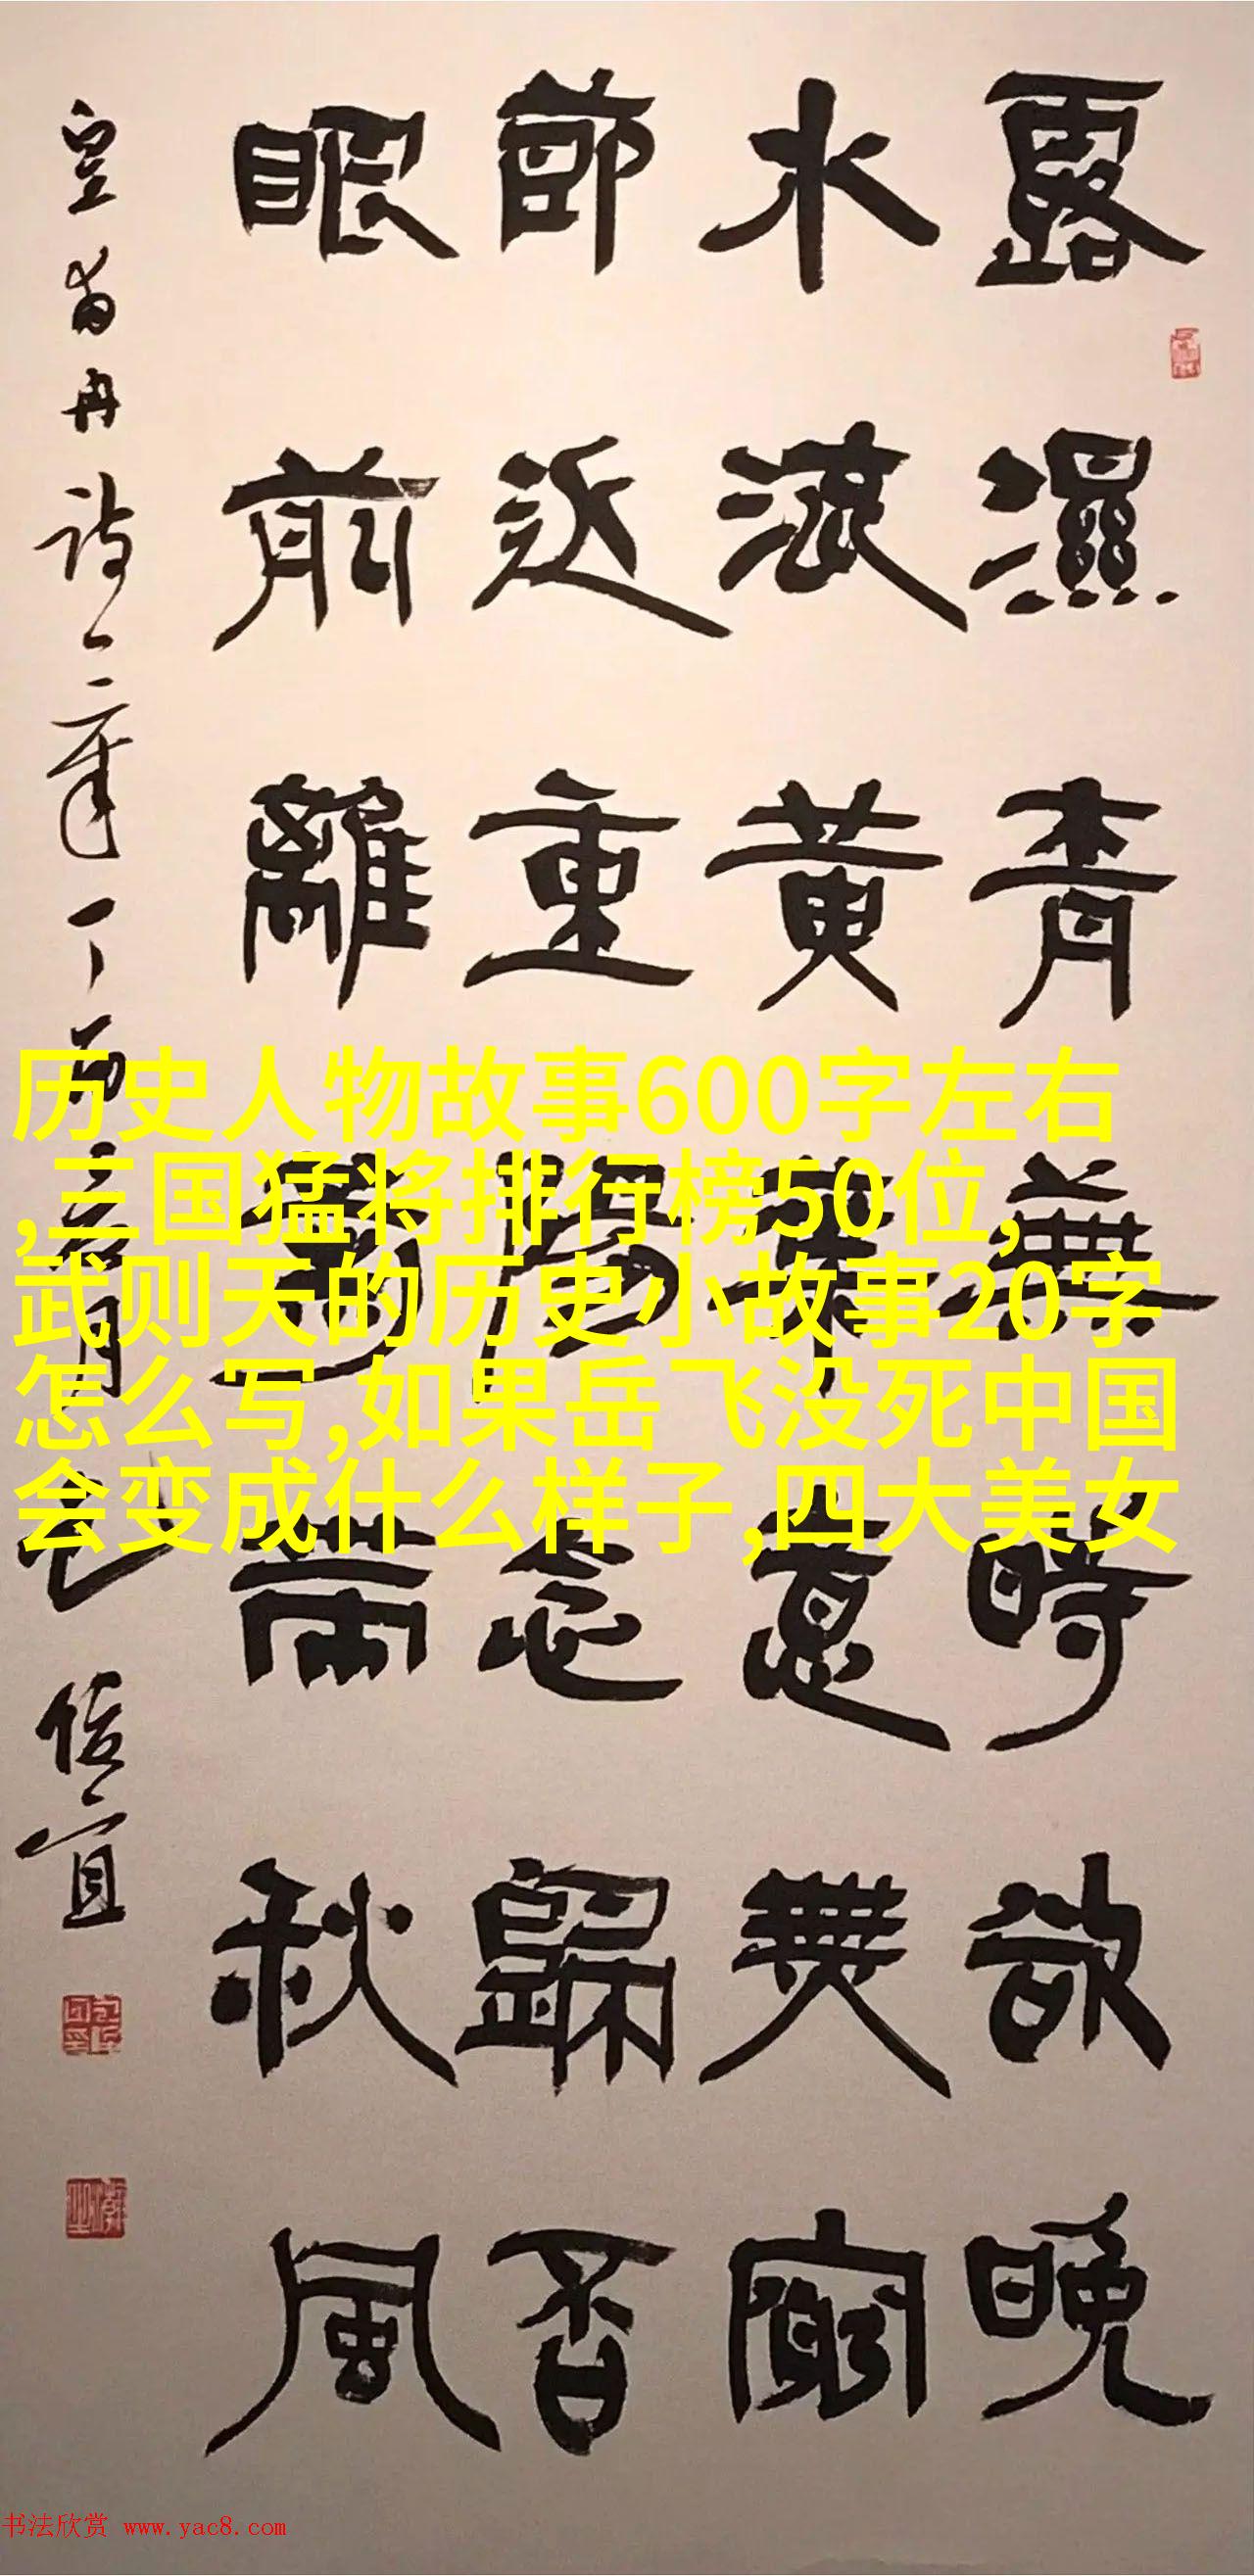 露濕青蕪時欲晚
水流黄葉意無窮
節近重陽念歸否
眼前離帶秋風
皇甫冉詩一章丁酉月
历史人物故事600字左右
,三国猛将排行榜50位,
武则天的历史小故事20字
怎么写,如果岳飞没死中国
会变成什么样子,四大美女
书法欣赏 www.yac8.com